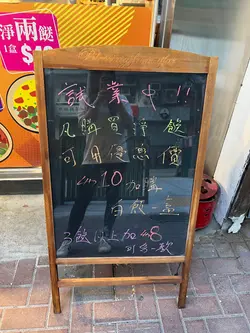 淨兩餸
1盒$
試業中!!
凡購買淨餸
可用優惠價
$10加購
白飯一盒
3餸以上加$8
可多一款